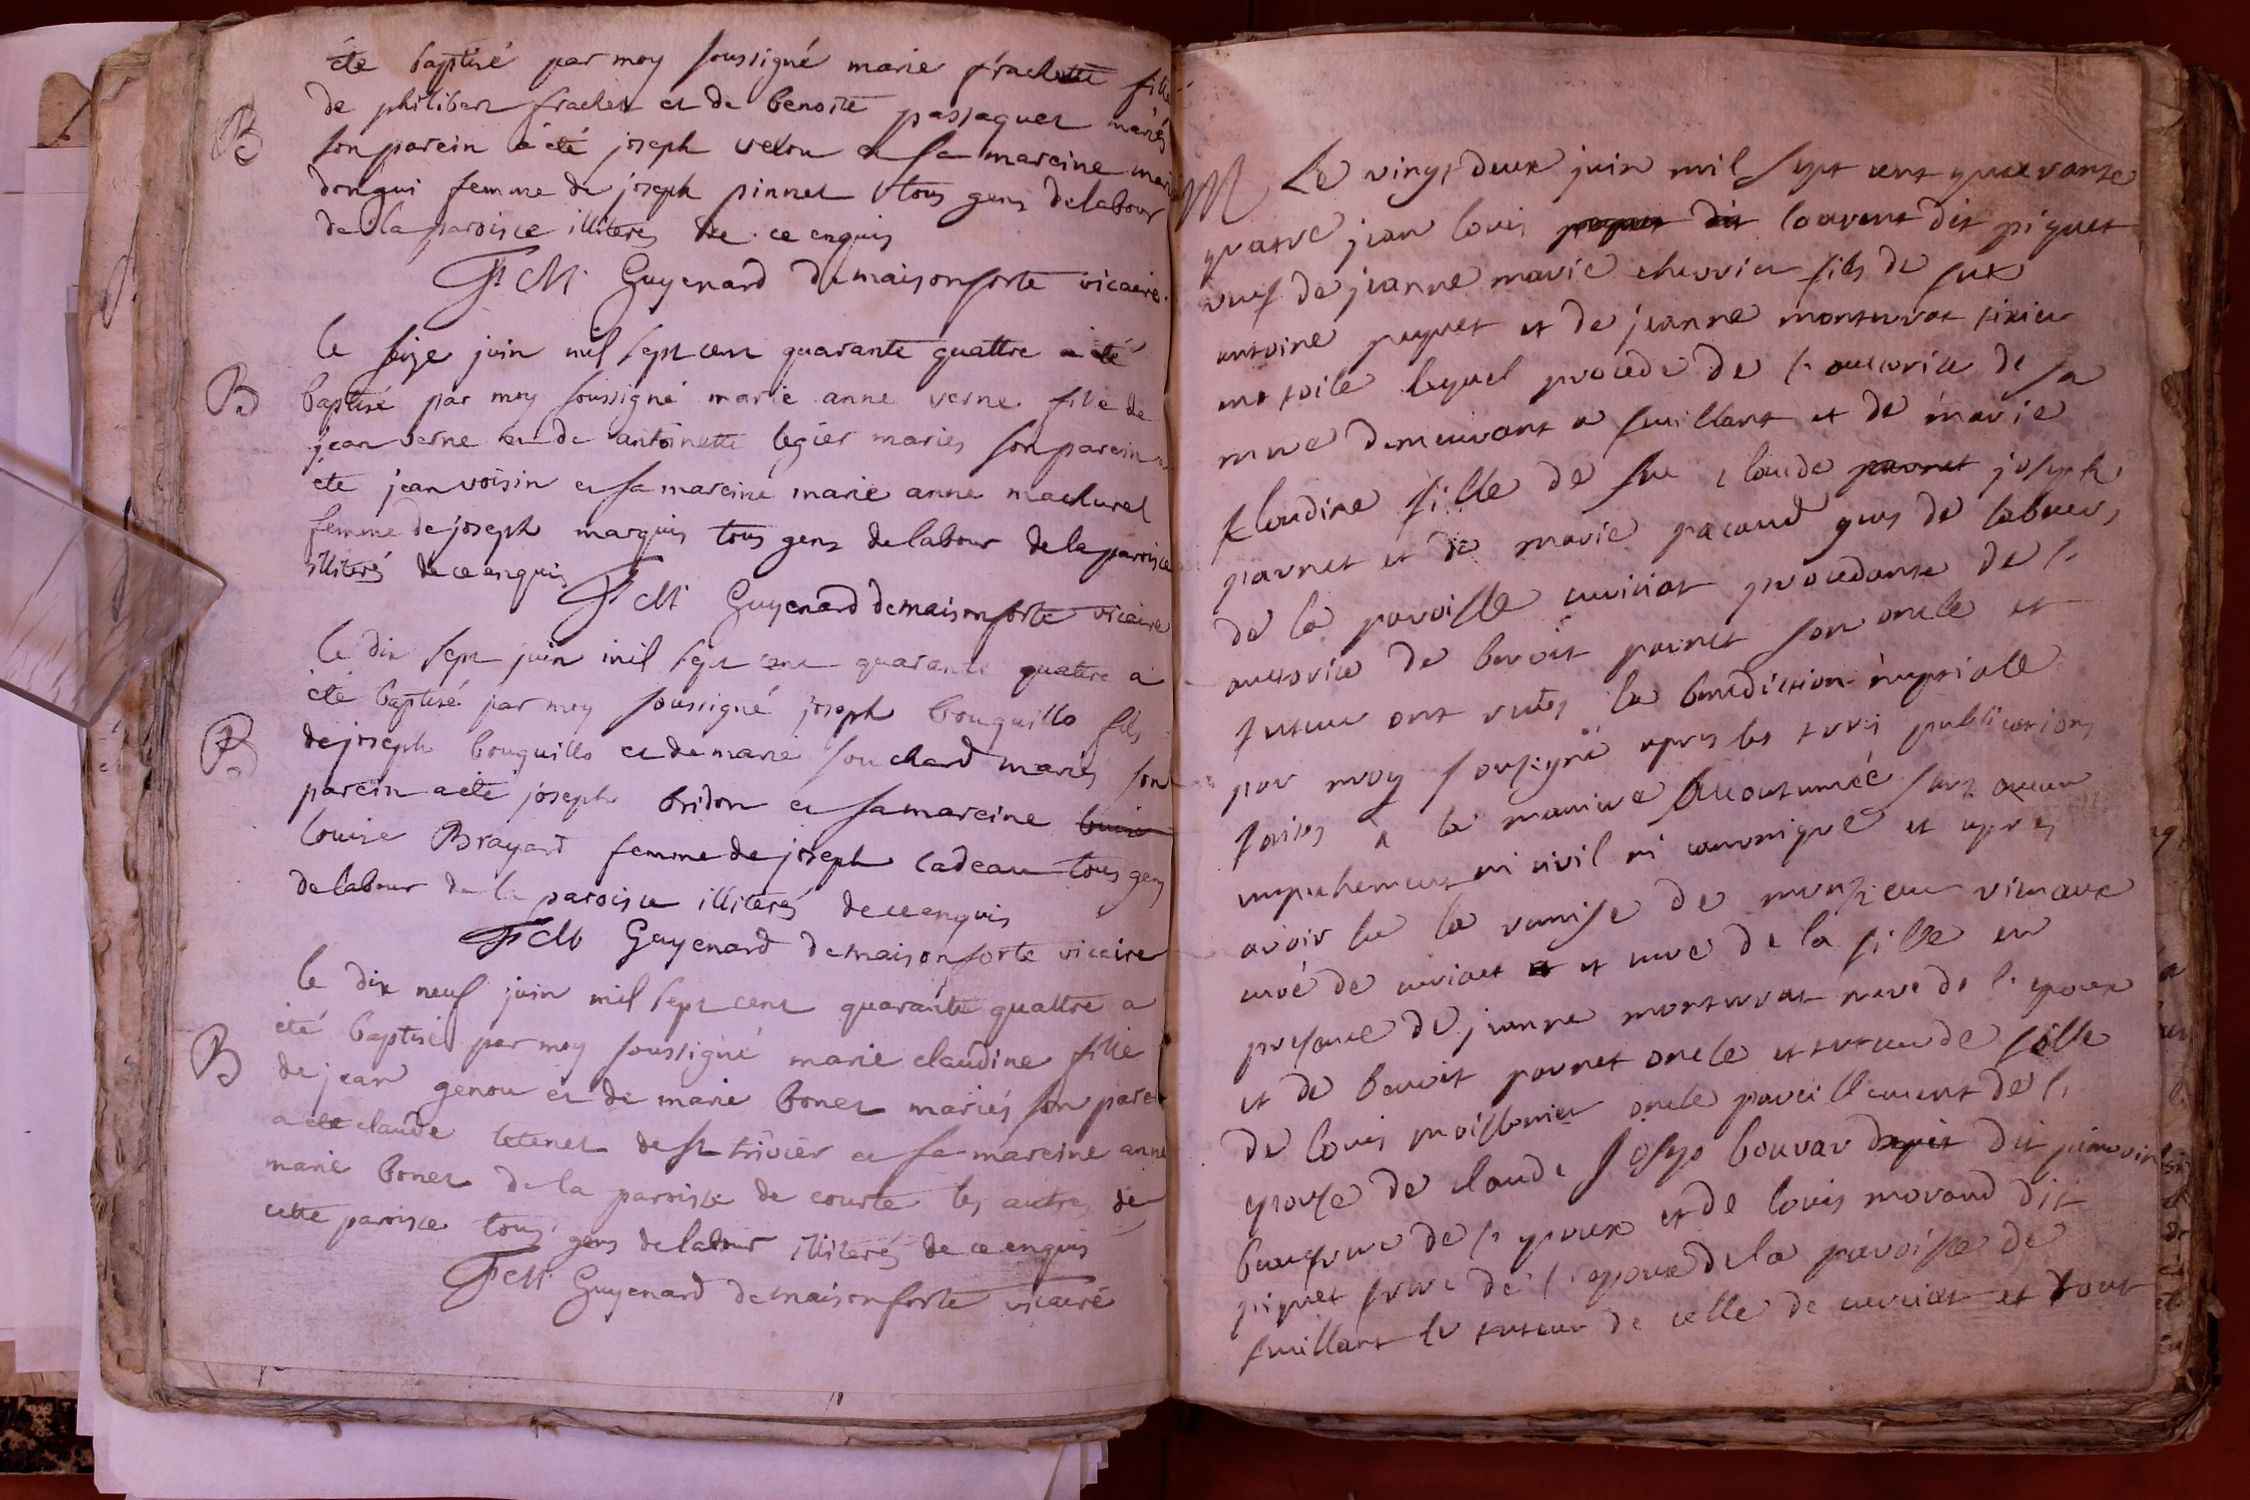 été baptisé par moy soussigné marie frachette fille
B de philibert frachet et de benoite passaquet mariés
son parein a été joseph velon et sa mareine marie
dongui femme de joseph pinnet tous gens delabour
de la paroisce illiteres de ce enquis
F M Guyenard demaisonforte vicaire
le seize juin mil sept cent quarante quattre a été
B baptisé par moy soussigné marie anne verne fille de
jean verne et de antoinette legier mariés son parein a
ete jean voisin et sa mareine marie anne machurel
femme de joseph marquis tous gens delabour de la paroisce
illiterés de ce enquis
F M Guyenard demaisonforte vicaire
le dix sept juin mil sept cent quarante quattre a
été baptisé par moy soussigné joseph bouquillo fils
B de joseph bouquillo et de marie souchard mariés son
parein a été joseph bridon et sa mareine louise
louise Brayard femme de joseph cadeau tous gens
delabour de la paroisce illiterés de ce enquis
F M Guyenard demaisonforte vicaire
le dix neuf juin mil sept cent quarante quattre a
été baptisé par moy soussigné marie claudine fille
B de jean genou et de marie bonet mariés son parein
a été claude tetenet de st trivier et sa mareine anne
marie bonet de la paroisse de courte les autres de
cette paroisce tous gens delabour illiterés de ce enquis
F M Guyenard demaisonforte vicaire
M Le vingt deux juin mil sept cent quarante
quatre jean louis louvent dit piguet
veuf de jeanne marie chevrier fils de feux
antoine puguet et de jeanne monterrat tixier
en toile lequel procede de l'auctorité de sa
mere demeurant a feuillant et de marie
klaudine fille de feu claude joseph
pavnet et de marie pacaud gens de labeur,
de la paroisse curciat procedante de l'
auctorite de benoit pavnet son oncle et
tuteur ont recus la benediction nuptiale
par moy sousigné apres les trois publications
faites a la maniere accoutumée sans aucun
empechement ni civil ni canonique et apres
avoir lu la remise de monsieur vieneaux
curé de curciat et et curé de la fille en
presence de jeanne monterrat mere de l'epoux
et de benoit pavnet oncle et tuteur de fille
de louis moissonier oncle pareillement de l'
epouse de claude joseph bouvar dit
beaufrere de l'epoux et de louis morand dit
piguet frere de l'epoux de la paroisse de
feuillant le tuteur de celle de curciat et tout